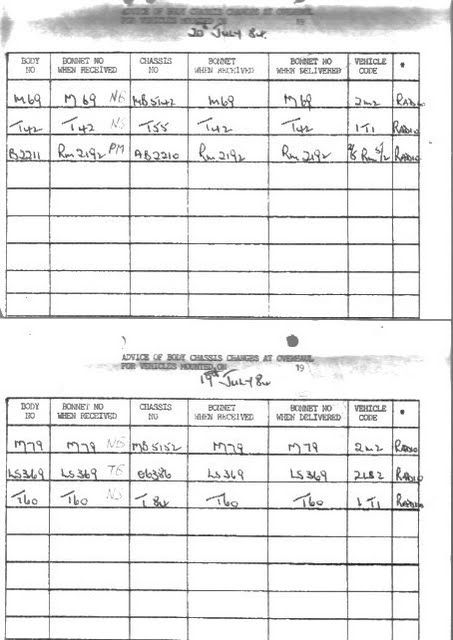 ADVICE OF BODY CHASSIS CHANGES AT OVERHAUL
FOR VEHICLES MOUNTED ON 19
20th July 84.
BODY NO BONNET NO WHEN RECEIVED CHASSIS NO BONNET WHEN RECEIVED BONNET NO WHEN DELIVERED VEHICLE CODE *
M69 M69 NS MB5142 M69 M69 2M2 RADIO
T42 T42 NS T55 T42 T42 1T1 RADIO
B2211 RM2192 PM AB2210 RM2192 RM2192 RM RADIO
ADVICE OF BODY CHASSIS CHANGES AT OVERHAUL
FOR VEHICLES MOUNTED ON 19
19th July 84
BODY NO BONNET NO WHEN RECEIVED CHASSIS NO BONNET WHEN RECEIVED BONNET NO WHEN DELIVERED VEHICLE CODE *
M79 M79 NS MB5152 M79 M79 2M2 RADIO
LS369 LS369 TG LS369 LS369 2LS2 RADIO
T60 T60 NS T84 T60 T60 1T1 RADIO